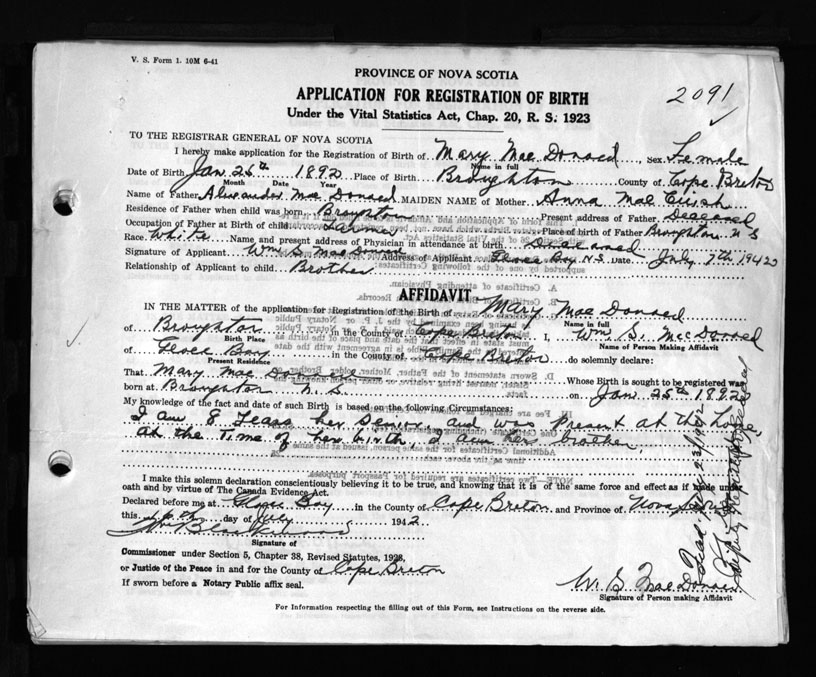 V. S. Form 1. 10M 6-41
PROVINCE OF NOVA SCOTIA
APPLICATION FOR REGISTRATION OF BIRTH
2091
Under the Vital Statistics Act, Chap. 20, R. S. 1923
TO THE REGISTRAR GENERAL OF NOVA SCOTIA
I hereby make application for the Registration of Birth of Mary Mac Donald, Sex Female
Name in full
Date of Birth Jan 25th 1892 Place of Birth Broughton County of Cape Breton
Month Date Year
Name of Father Alexander Mac Donald MAIDEN NAME of Mother Anna Mac
Residence of Father when child was born Broughton Present address of Father Deceased
Occupation of Father at Birth of child Farmer Place of birth of Father Broughton N S
Race White Name and present address of Physician in attendance at birth
Signature of Applicant Wm S. Mac Donald Address of Applicant Glace Bay N.S. Date July 7th 1942
Relationship of Applicant to child Brother
AFFIDAVIT
IN THE MATTER of the application for Registration of the Birth of Mary Mac Donald
Name in full
of Broughton in the County of Cape Breton I, Wm. S. Mac Donald
Birth Place Name of Person Making Affidavit
of Glace Bay in the County of Cape Breton do solemnly declare:
Present Residence
That Mary Mac Donald Whose Birth is sought to be registered was
born at Broughton N. S. on Jan. 25th 1892
My knowledge of the fact and date of such Birth is based on the following Circumstances:
I am 8 Years her Senior and was Present at the house
at the Time of her birth, I am her brother.
I make this solemn declaration conscientiously believing it to be true, and knowing that it is of the same force and effect as if made under
oath and by virtue of The Canada Evidence Act.
Declared before me at Glace Bay in the County of Cape Breton and Province of Nova Scotia
this day of July 1942
Signature of
Commissioner under Section 5, Chapter 38, Revised Statutes, 1923,
or Justice of the Peace in and for the County of Cape Breton
If sworn before a Notary Public affix seal.
W. S. Mac Donald
Signature of Person making Affidavit
For Information respecting the filling out of this Form, see Instructions on the reverse side.